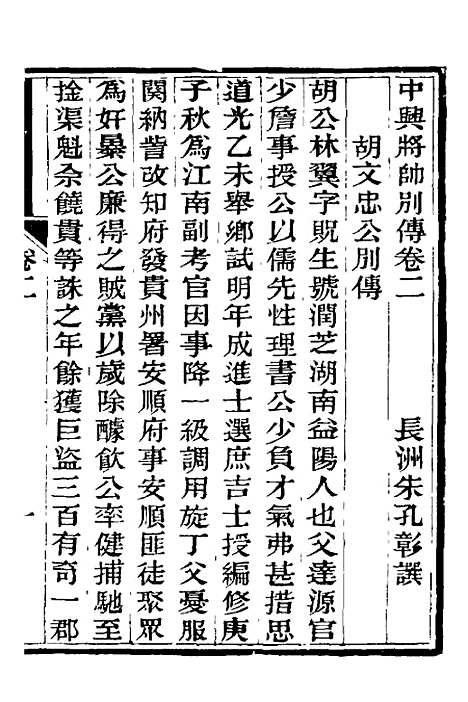 中興將帥別傳卷二　　　長洲朱孔彰譔
胡文忠公別傳
胡公林翼字貺生號潤芝湖南益陽人也父達源官
少詹事授公以儒先性理書公少負才氣弗甚措思
道光乙未舉鄉試明年成進士選庶吉士授編修庚
子秋爲江南副考官因事降一級調用旋丁父憂服
闋納貲改知府發貴州署安順府事安順匪徒聚眾
爲奸暴公廉得之賊黨以歲除醵飲公率健捕馳至
捡渠魁佘饒貴等誅之年餘獲巨盜三百有奇一郡
卷二
一